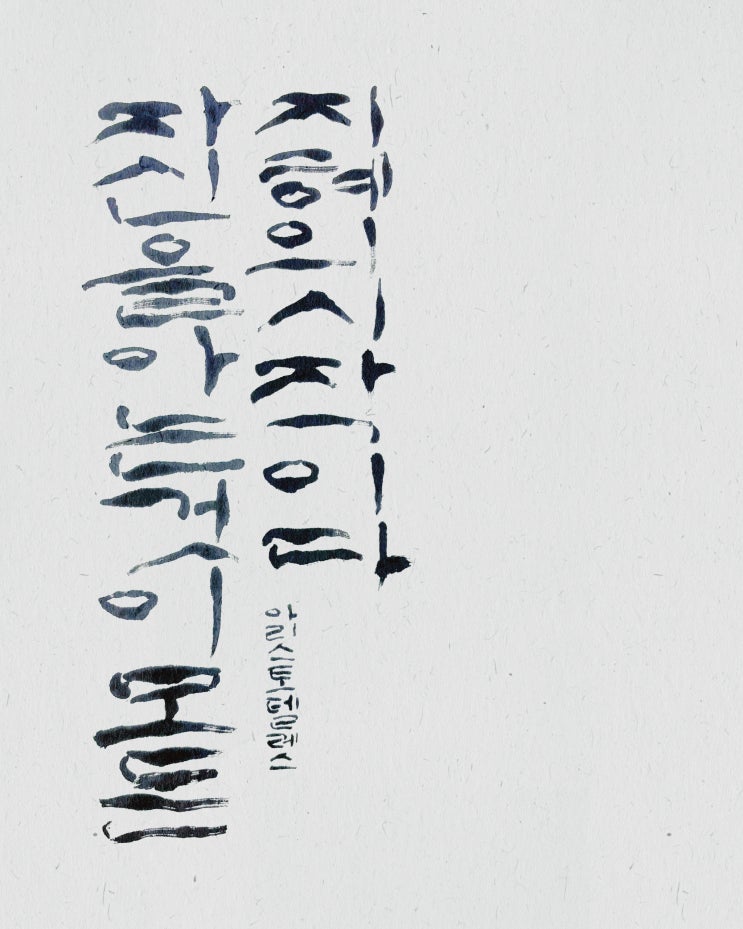 자신을아는것이모든
지혜의시작이다
아리스토텔레스